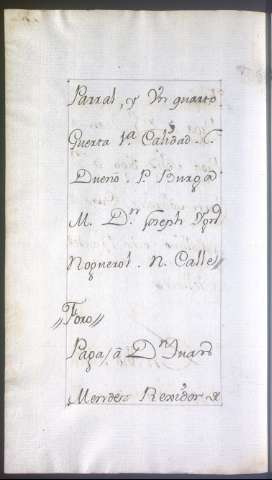 Parral, y Vn quarto
Guerta 1ª Calidad. C.
Dueño. P. Burga
M. Dn. Joseph
Noguerol. N. Calle //
// Foro //
Paga, â Dn. Juan
Mendez Rexidor